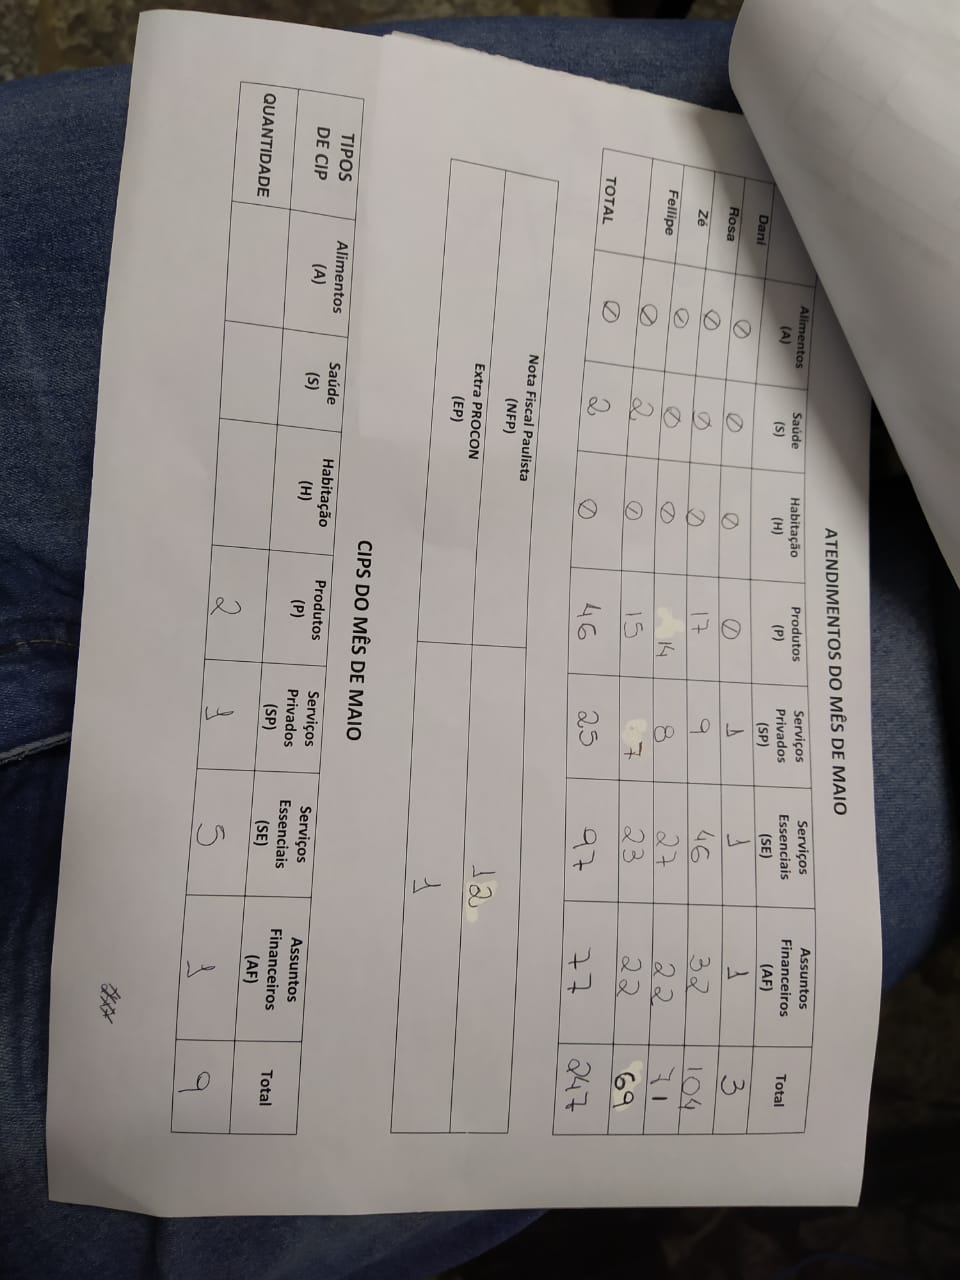 ATENDIMENTOS DO MÊS DE MAIO
Alimentos (A) Saúde (S) Habitação (H) Produtos (P) Serviços Privados (SP) Serviços Essenciais (SE) Assuntos Financeiros (AF) Total
Dani Ø Ø Ø Ø 1 1 1 3
Rosa Ø Ø Ø 17 9 46 32 104
Zé Ø Ø Ø 14 8 27 22 71
Fellipe Ø 2 Ø 15 7 23 22 69
TOTAL Ø 2 Ø 46 25 97 77 247
Nota Fiscal Paulista (NFP) 12
Extra PROCON (EP) 1
CIPS DO MÊS DE MAIO
TIPOS DE CIP Alimentos (A) Saúde (S) Habitação (H) Produtos (P) Serviços Privados (SP) Serviços Essenciais (SE) Assuntos Financeiros (AF) Total
QUANTIDADE 2 1 5 1 9